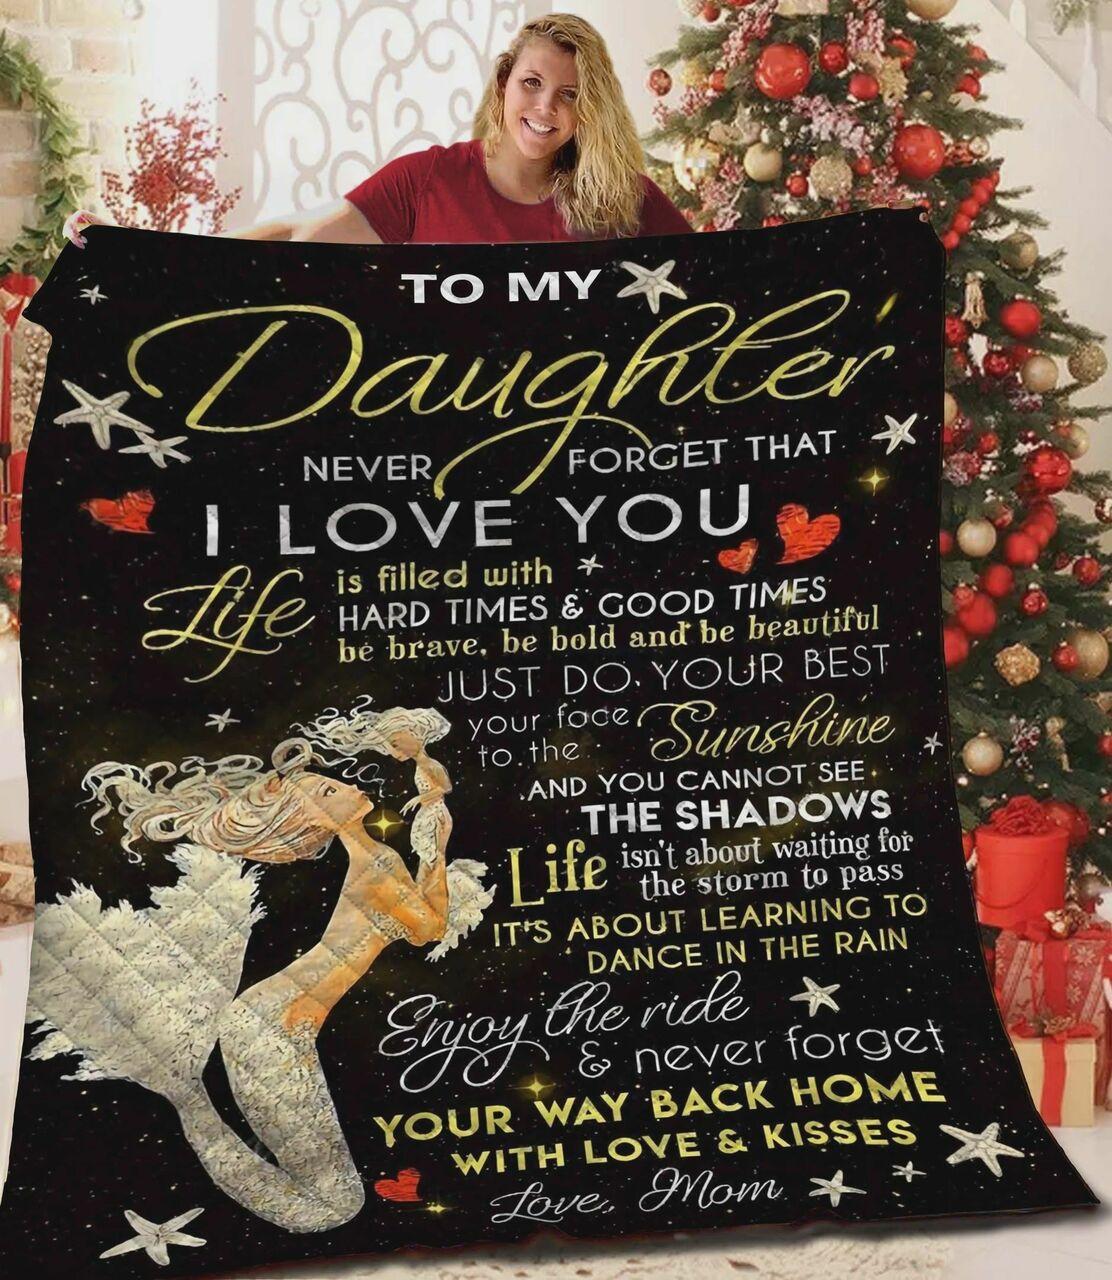 TO MY
Daughter
NEVER FORGET THAT
I LOVE YOU
Life is filled with
HARD TIMES & GOOD TIMES
be brave, be bold and be beautiful
JUST DO YOUR BEST
your face
to the Sunshine
AND YOU CANNOT SEE
THE SHADOWS
Life isn't about waiting for
the storm to pass
IT'S ABOUT LEARNING TO
DANCE IN THE RAIN
Enjoy the ride
& never forget
YOUR WAY BACK HOME
WITH LOVE & KISSES
Love, Mom